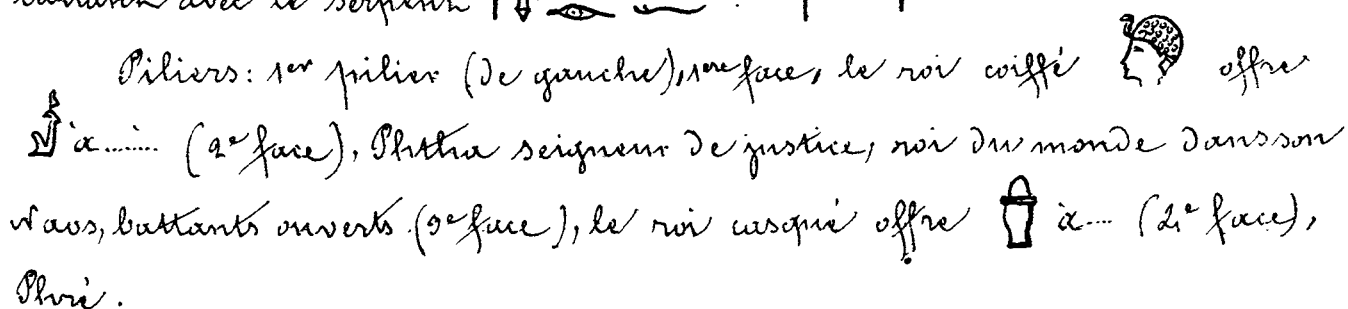 avec le serpent
Piliers: 1er pilier (de gauche), 1ere face, le roi coiffé offre
à ....... (2e face), Phtha seigneur de justice, roi du monde dans son
Naos, battants ouverts (3e face), le roi casqué offre à .... (4e face),
Phré.